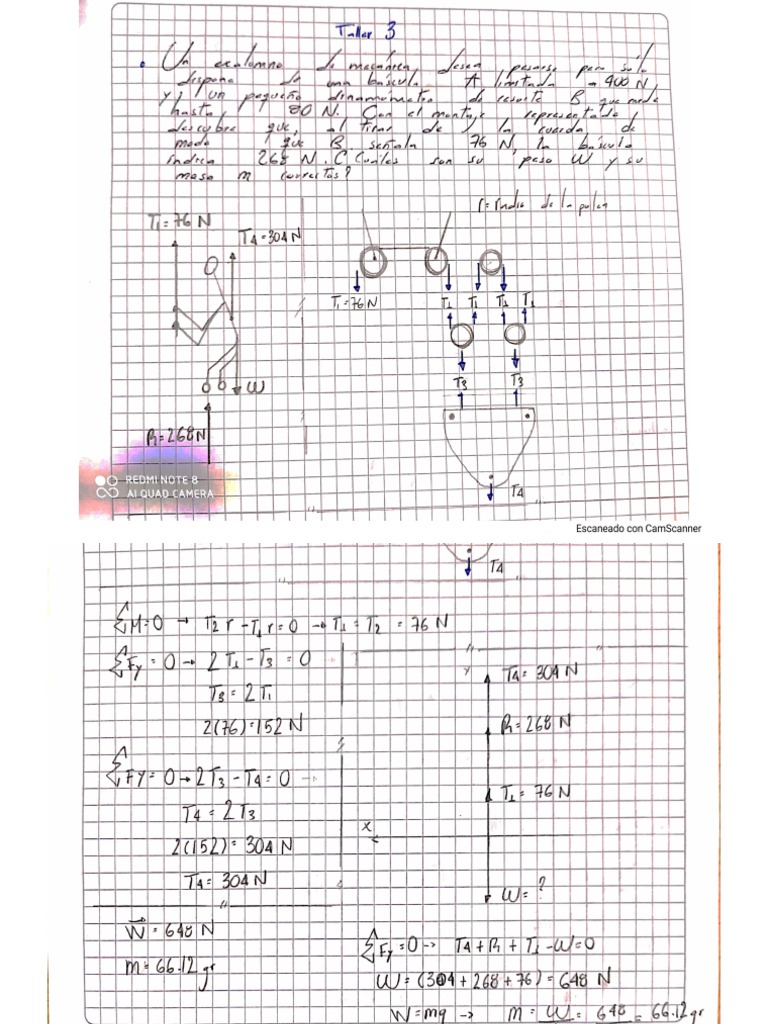 Taller 3
• Un exalumno de mecánica desea pesarse pero sólo
dispone de una báscula A limitada a 400 N
y un pequeño dinamometro de resorte B que mide
hasta 80 N. Con el montaje representado
descubre que, al tirar de la cuerda de
modo que B señala 76 N, la báscula
indica 268 N. ¿Cuáles son su peso W y su
masa m correctos?
r = radio de la polea
T1 = 76 N
T4 = 304 N
T1 = 76 N
T1 T1 T1 T1
T3 T3
W
R = 268 N
T4
REDMI NOTE 8
AI QUAD CAMERA
Escaneado con CamScanner
T4
∑M=0 → T2 r - T1 r = 0 → T1 = T2 = 76 N
∑Fy = 0 → 2T1 - T3 = 0
T3 = 2T1
2(76) = 152 N
∑FY = 0 → 2T3 - T4 = 0
T4 = 2T3
2(152) = 304 N
T4 = 304 N
W = 648 N
m = 66.12 gr
y
T4 = 304 N
R = 268 N
T1 = 76 N
x
W = ?
∑Fy = 0 → T4 + R + T1 - W = 0
W = (304 + 268 + 76) = 648 N
W = mg → m = W = 648 = 66.12 gr